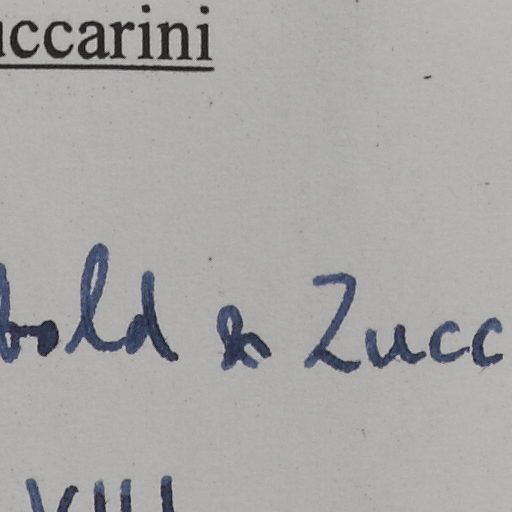 uccarini
bold & Zucc
VIII